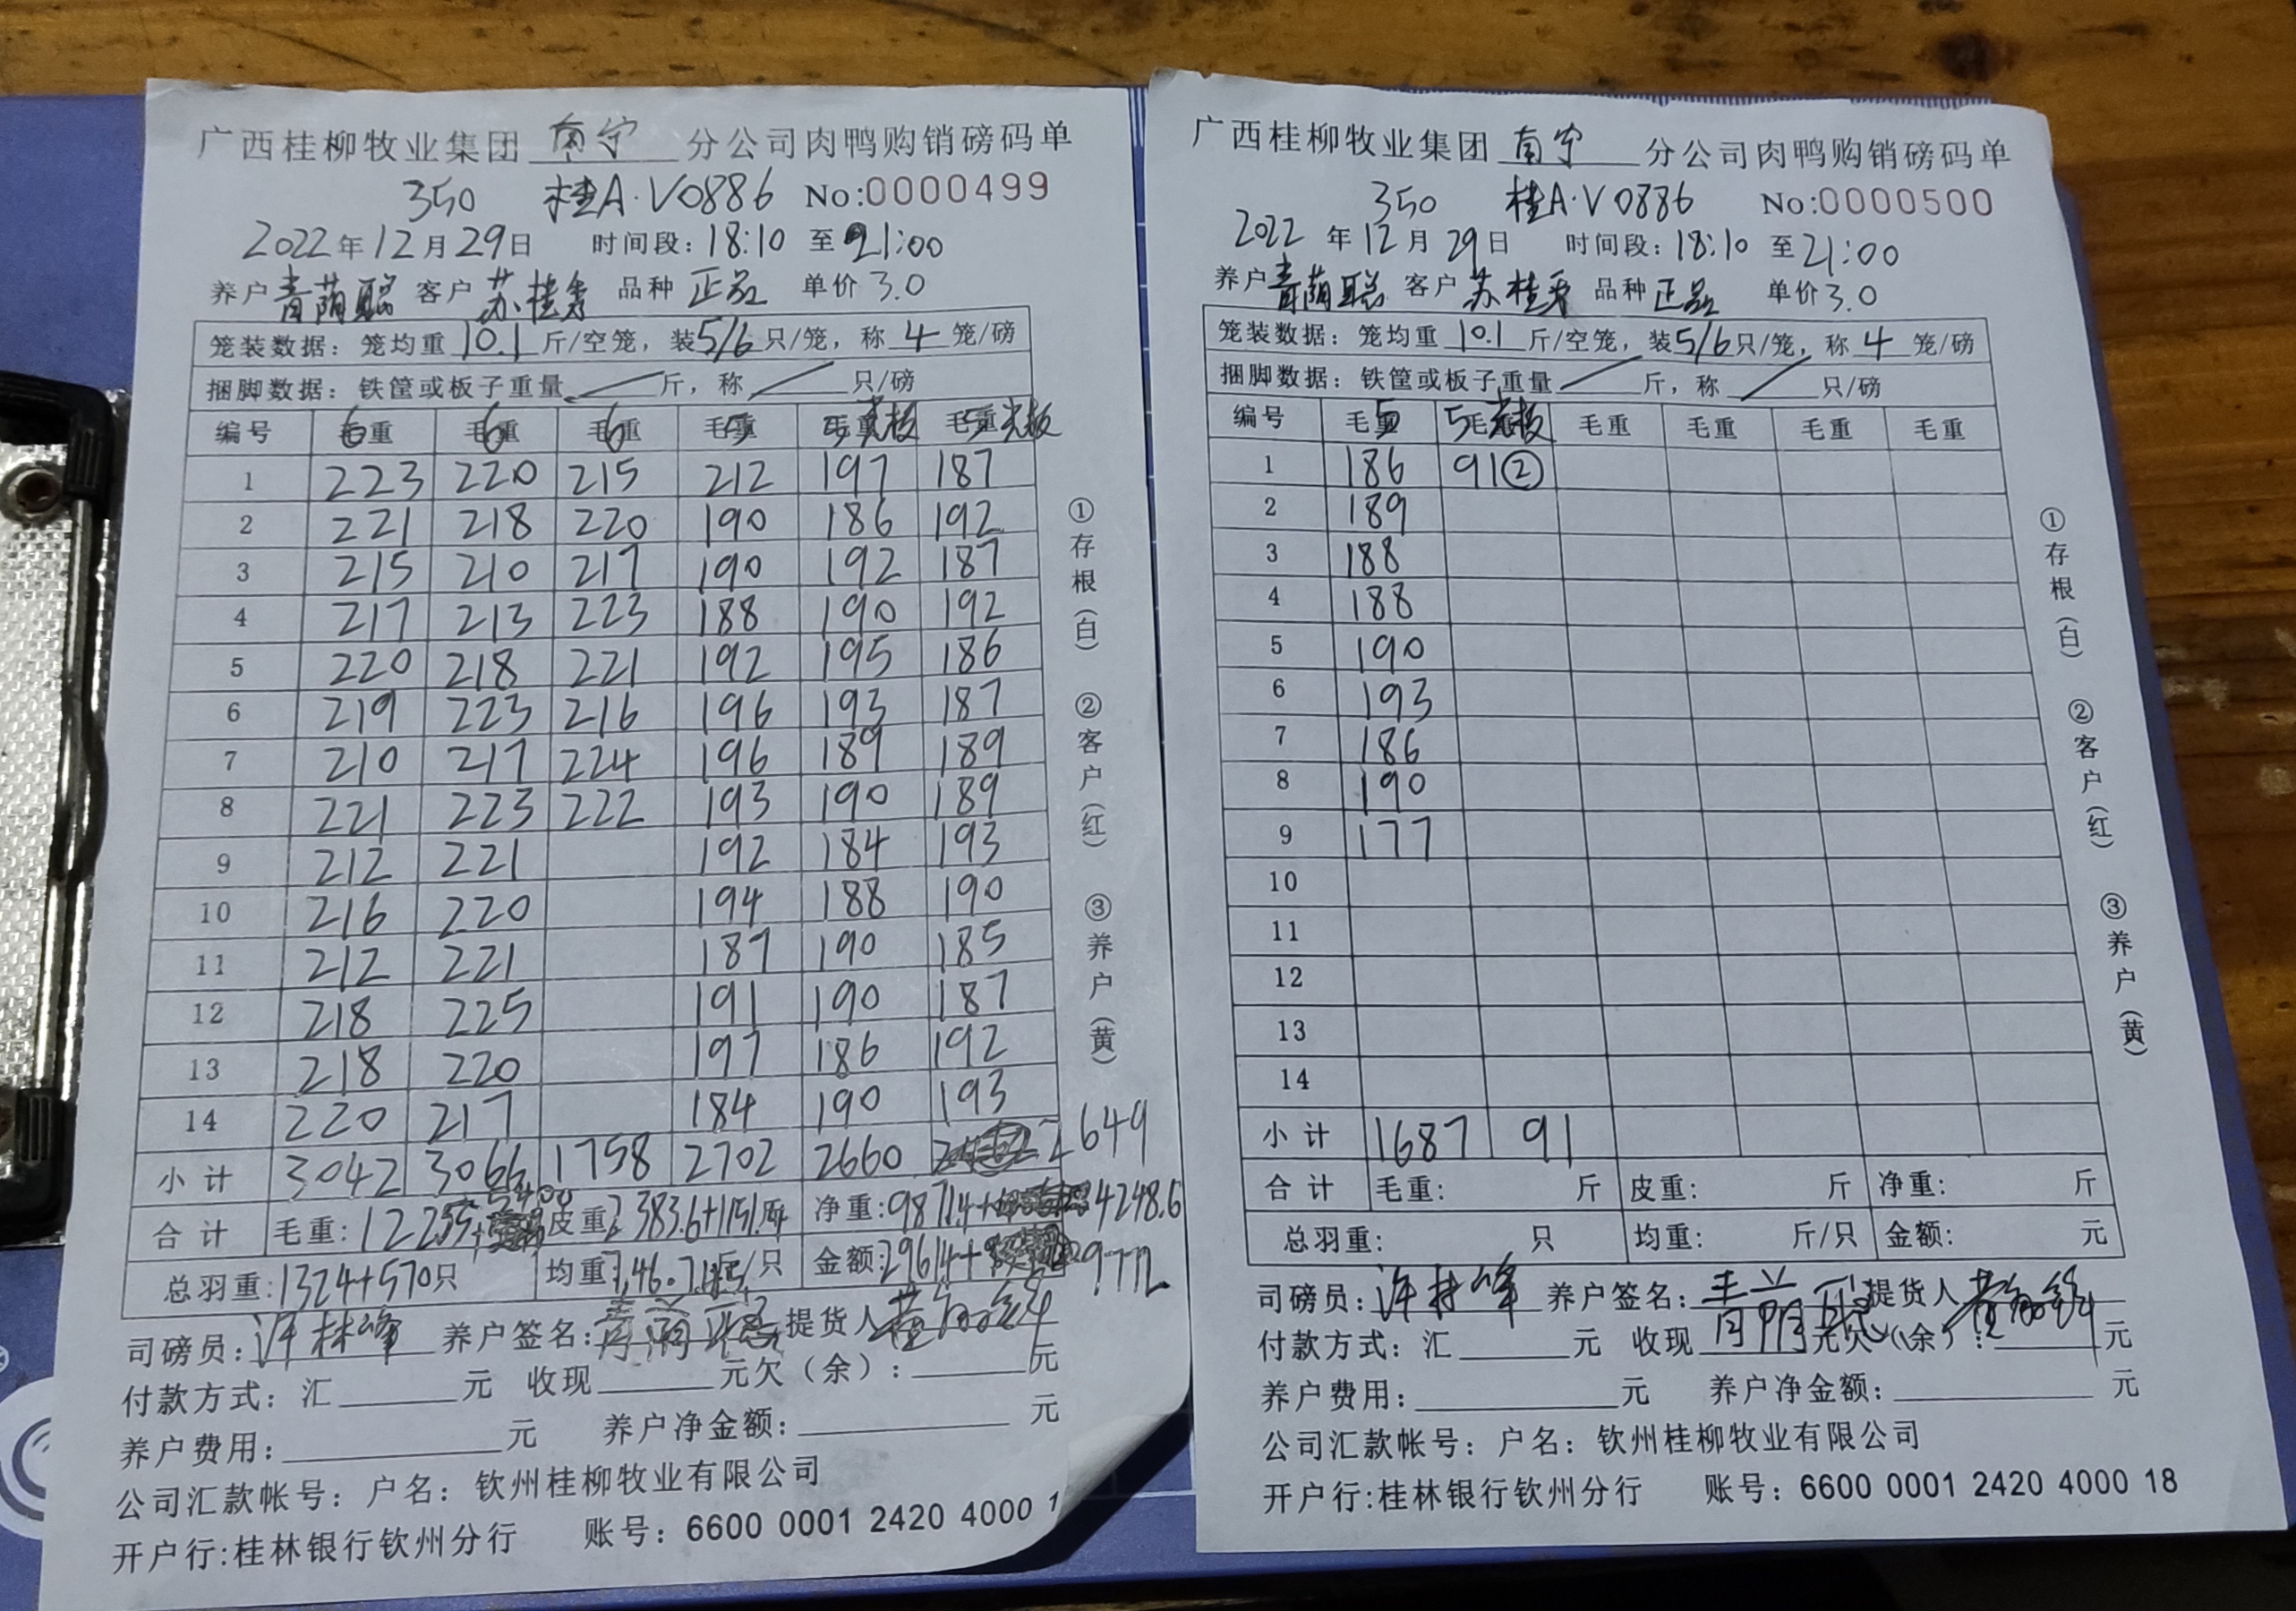 广西桂柳牧业集团 南宁 分公司肉鸭购销磅码单
350 桂A·V0886 No:0000499
2022年12月29日 时间段:18:10 至21:00
养户 青荫聪 客户 苏桂秀 品种 正品 单价 3.0
笼装数据:笼均重 10.1 斤/空笼,装5/6只/笼,称 4 笼/磅
捆脚数据:铁筐或板子重量 斤,称 只/磅
编号 毛重6 毛重6 毛重6 毛重5 毛重5光板 毛重5光板
1 223 220 215 212 197 187
2 221 218 220 190 186 192
3 215 210 217 190 192 187
4 217 213 223 188 190 192
5 220 218 221 192 195 186
6 219 223 216 196 193 187
7 210 217 224 196 189 189
8 221 223 222 193 190 189
9 212 221 192 184 193
10 216 220 194 188 190
11 212 221 187 190 185
12 218 225 191 190 187
13 218 220 197 186 192
14 220 217 184 190 193
小计 3042 3066 1758 2702 2660 2649
合计 毛重:12255+5400 皮重:2383.6+1151.4 净重:9871.4+4248.6
总羽重:1324+570只 均重: 斤/只 金额:29614+
司磅员:许林峰 养户签名:青荫聪 提货人
付款方式:汇 元 收现 元欠(余): 元
养户费用: 元 养户净金额: 元
公司汇款帐号:户名:钦州桂柳牧业有限公司
开户行:桂林银行钦州分行 账号:6600 0001 2420 4000 1
①存根(白) ②客户(红) ③养户(黄)
广西桂柳牧业集团 南宁 分公司肉鸭购销磅码单
350 桂A·V0886 No:0000500
2022年12月29日 时间段:18:10 至21:00
养户 青荫聪 客户 苏桂秀 品种 正品 单价3.0
笼装数据:笼均重 10.1 斤/空笼,装5/6只/笼,称 4 笼/磅
捆脚数据:铁筐或板子重量 斤,称 只/磅
编号 毛重5 毛重5光板 毛重 毛重 毛重 毛重
1 186 91②
2 189
3 188
4 188
5 190
6 193
7 186
8 190
9 177
10
11
12
13
14
小计 1687 91
合计 毛重: 斤 皮重: 斤 净重: 斤
总羽重: 只 均重: 斤/只 金额: 元
司磅员:许林峰 养户签名:青荫聪 提货人
付款方式:汇 元 收现 元欠(余): 元
养户费用: 元 养户净金额: 元
公司汇款帐号:户名:钦州桂柳牧业有限公司
开户行:桂林银行钦州分行 账号:6600 0001 2420 4000 18
①存根(白) ②客户(红) ③养户(黄)